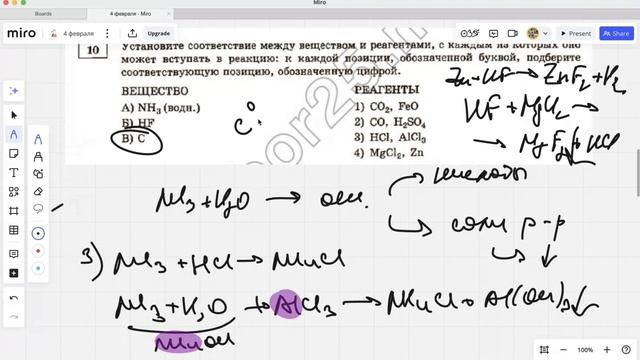 Miro
Boards
4 февраля - Miro
miro
4 февраля
Upgrade
Present
Share
10
Установите соответствие между веществом и реагентами, с каждым из которых оно
может вступать в реакцию: к каждой позиции, обозначенной буквой, подберите
соответствующую позицию, обозначенную цифрой.
ВЕЩЕСТВО
А) NH₃ (водн.)
Б) HF
В) C
РЕАГЕНТЫ
1) CO₂, FeO
2) CO, H₂SO₄
3) HCl, AlCl₃
4) MgCl₂, Zn
C⁰
Zn + HF → ZnF₂ + H₂
HF + MgCl₂ →
→ MgF₂↓ + HCl
NH₃ + H₂O → осн.
кислоты
соли р-р
↓
3) NH₃ + HCl → NH₄Cl
NH₃ + H₂O + AlCl₃ → NH₄Cl + Al(OH)₃↓
NH₄OH
100%